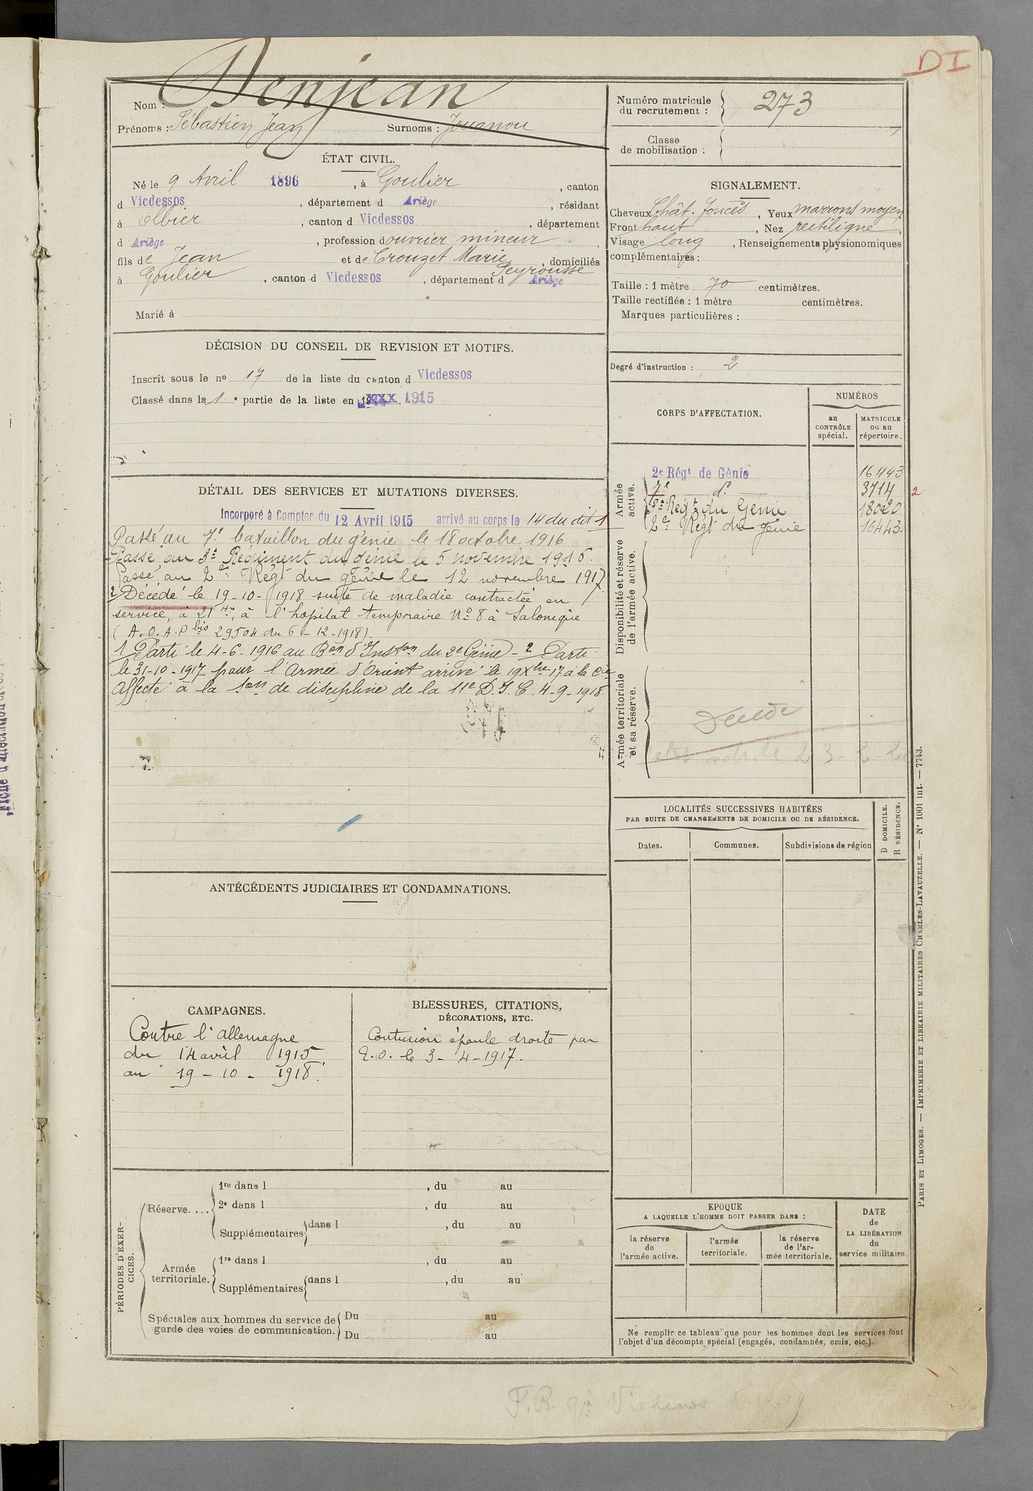 DI
Nom : Denjean
Prénoms : Sébastien Jean Surnoms : Jouanou
ÉTAT CIVIL.
Né le 9 Avril 1896, à Goulier, canton
d Vicdessos, département d Ariège, résidant
à Olbier, canton d Vicdessos, département
d Ariège, profession d ouvrier mineur,
fils de Jean et de Crouzet Marie Peyrousse, domiciliés
à Goulier, canton d Vicdessos, département d Ariège
Marié à
DÉCISION DU CONSEIL DE REVISION ET MOTIFS.
Inscrit sous le no 17 de la liste du canton d Vicdessos
Classé dans la 1e partie de la liste en 1915
DÉTAIL DES SERVICES ET MUTATIONS DIVERSES.
Incorporé à Compter du 12 Avril 1915 arrivé au corps le 14 du dit 1
Passé au 7e bataillon du génie le 18 octobre 1916
Passé au Régiment du génie le 5 novembre 1916.
Passé au 2e Régt du génie le 12 novembre 1917
2 Décédé le 19-10-1918 suite de maladie contractée en
service, à 21 h, à l'hopital temporaire No 8 à Salonique
(A.O.A.P bis 29504 du 6-12-1918).
1 Parti le 4-6-1916 au Bon d'Inston du 2e Génie - 2 Parti
le 31-10-1917 pour l'Armée d'Orient arrivé le 19 Xbre 17 à la Cie
Affecté à la Son de discipline de la 11e D.I.C. 4-9-1918
ANTÉCÉDENTS JUDICIAIRES ET CONDAMNATIONS.
CAMPAGNES.
Contre l'allemagne
du 14 avril 1915
au 19-10-1918.
BLESSURES, CITATIONS,
DÉCORATIONS, ETC.
Contusion épaule droite par
E.O. le 3-4-1917.
PÉRIODES D'EXERCICES.
Réserve....
1re dans l , du au
2e dans l , du au
Supplémentaires dans l , du au
Armée territoriale.
1re dans l , du au
Supplémentaires dans l , du au
Spéciales aux hommes du service de
garde des voies de communication.
Du au
Du au
Numéro matricule
du recrutement : 273
Classe
de mobilisation :
SIGNALEMENT.
Cheveux Chât. foncés, Yeux marrons moyen
Front haut, Nez rectiligne,
Visage long, Renseignements physionomiques
complémentaires :
Taille : 1 mètre 70 centimètres.
Taille rectifiée : 1 mètre centimètres.
Marques particulières :
Degré d'instruction : 2
CORPS D'AFFECTATION.
NUMÉROS
au CONTRÔLE spécial.
MATRICULE ou au répertoire.
Armée active.
2e Régt de Génie 16443
7e do 3714 2
Régt du Génie 18020
2e Régt du génie 16443.
Disponibilité et réserve
de l'armée active.
Armée territoriale
et sa réserve.
Décédé
LOCALITÉS SUCCESSIVES HABITÉES
PAR SUITE DE CHANGEMENTS DE DOMICILE OU DE RÉSIDENCE.
Dates. Communes. Subdivisions de région
D DOMICILE.
R RÉSIDENCE.
EPOQUE
A LAQUELLE L'HOMME DOIT PASSER DANS :
la réserve de l'armée active.
l'armée territoriale.
la réserve de l'armée territoriale.
DATE de LA LIBÉRATION du service militaire.
Ne remplir ce tableau que pour les hommes dont les services font
l'objet d'un décompte spécial (engagés, condamnés, omis, etc.).
PARIS ET LIMOGES. — IMPRIMERIE ET LIBRAIRIE MILITAIRES CHARLES-LAVAUZELLE. — No 1001 int. — 7743.